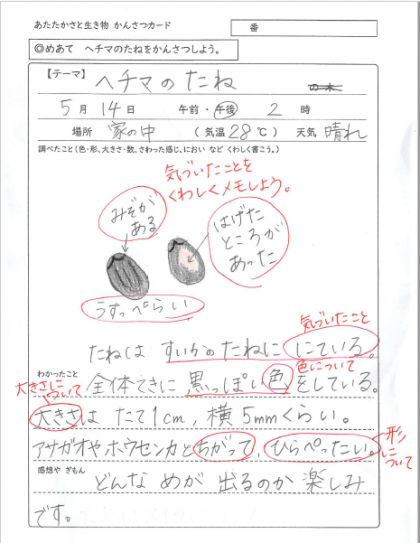 あたたかさと生き物 かんさつカード
番
◎めあて ヘチマのたねをかんさつしよう。
【テーマ】 ヘチマのたね
5月14日 午前・午後 2時
場所 家の中 (気温28℃) 天気 晴れ
調べたこと(色・形、大きさ・数、さわった感じ、におい など くわしく書こう。)
気づいたことを
くわしくメモしよう。
みぞが
ある
はげた
ところが
あった
うすっぺらい
気づいたこと
たねは すいかのたねに にている。
色について
わかったこと
大きさに
ついて
全体てきに 黒っぽい色をしている。
大きさは たて1cm, 横5mmくらい。
アサガオや、ホウセンカとちがって、ひらぺったい。
形
について
感想や ぎもん
どんな めが 出るのか 楽しみ
です。